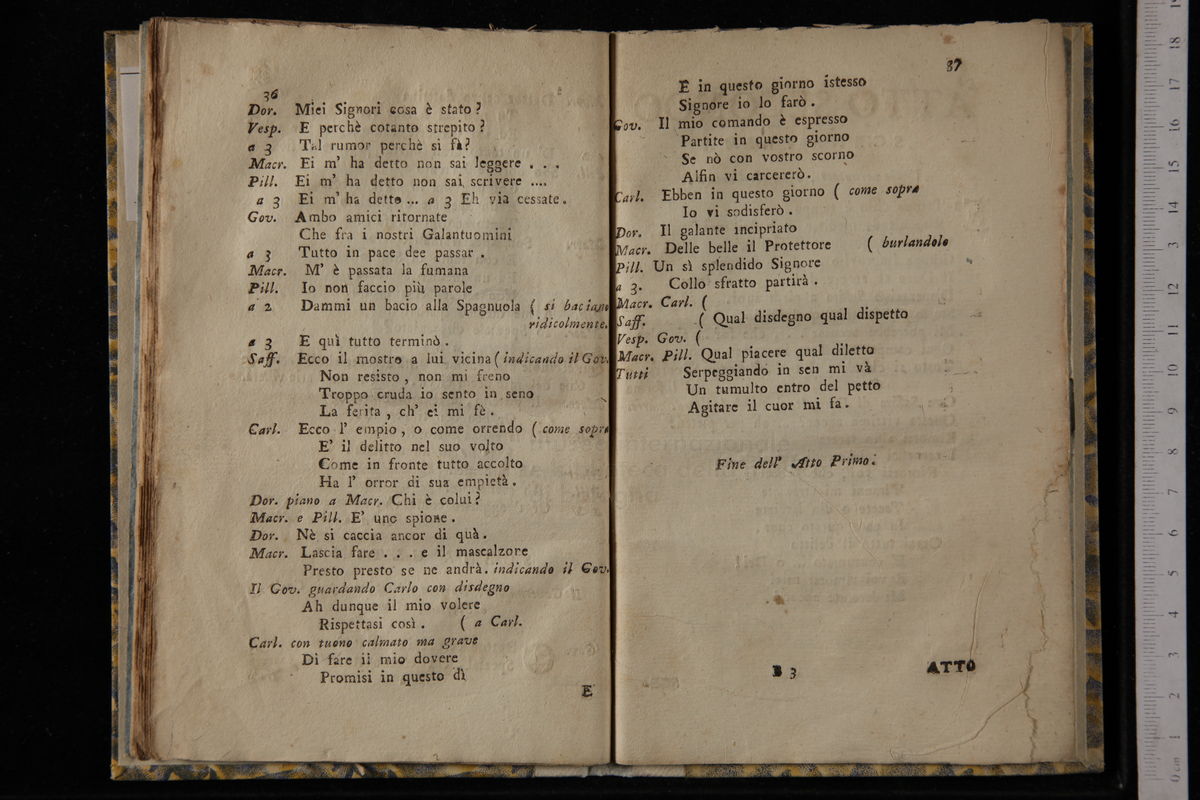 36
Dor. Miei Signori cosa è stato?
Vesp. E perchè cotanto strepito?
a 3 Tal rumor perchè si fà?
Macr. Ei m' ha detto non sai leggere . . .
Pill. Ei m' ha detto non sai scrivere ....
a 3 Ei m' ha detto ... a 3 Eh via cessate.
Gov. Ambo amici ritornate
Che fra i nostri Galantuomini
a 3 Tutto in pace dee passar .
Macr. M' è passata la fumana
Pill. Io non faccio più parole
a 2 Dammi un bacio alla Spagnuola ( si baciano
ridicolmente.
a 3 E quì tutto terminò .
Saff. Ecco il mostro a lui vicina ( indicando il Gov.
Non resisto , non mi freno
Troppo cruda io sento in seno
La ferita , ch' ei mi fè .
Carl. Ecco l' empio , o come orrendo ( come sopra
E' il delitto nel suo volto
Come in fronte tutto accolto
Ha l' orror di sua empietà .
Dor. piano a Macr. Chi è colui?
Macr. e Pill. E' uno spione .
Dor. Nè si caccia ancor di quà .
Macr. Lascia fare . . . e il mascalzone
Presto presto se ne andrà . indicando il Gov.
Il Gov. guardando Carlo con disdegno
Ah dunque il mio volere
Rispettasi così . ( a Carl.
Carl. con tuono calmato ma grave
Di fare il mio dovere
Promisi in questo dì
E
37
E in questo giorno istesso
Signore io lo farò .
Gov. Il mio comando è espresso
Partite in questo giorno
Se nò con vostro scorno
Alfin vi carcererò .
Carl. Ebben in questo giorno ( come sopra
Io vi sodisferò .
Dor. Il galante incipriato
Macr. Delle belle il Protettore ( burlandolo
Pill. Un sì splendido Signore
a 3. Collo sfratto partirà .
Macr. Carl. (
Saff. ( Qual disdegno qual dispetto
Vesp. Gov. (
Macr. Pill. Qual piacere qual diletto
Tutti Serpeggiando in sen mi và
Un tumulto entro del petto
Agitare il cuor mi fa .
Fine dell' Atto Primo.
B 3
ATTO